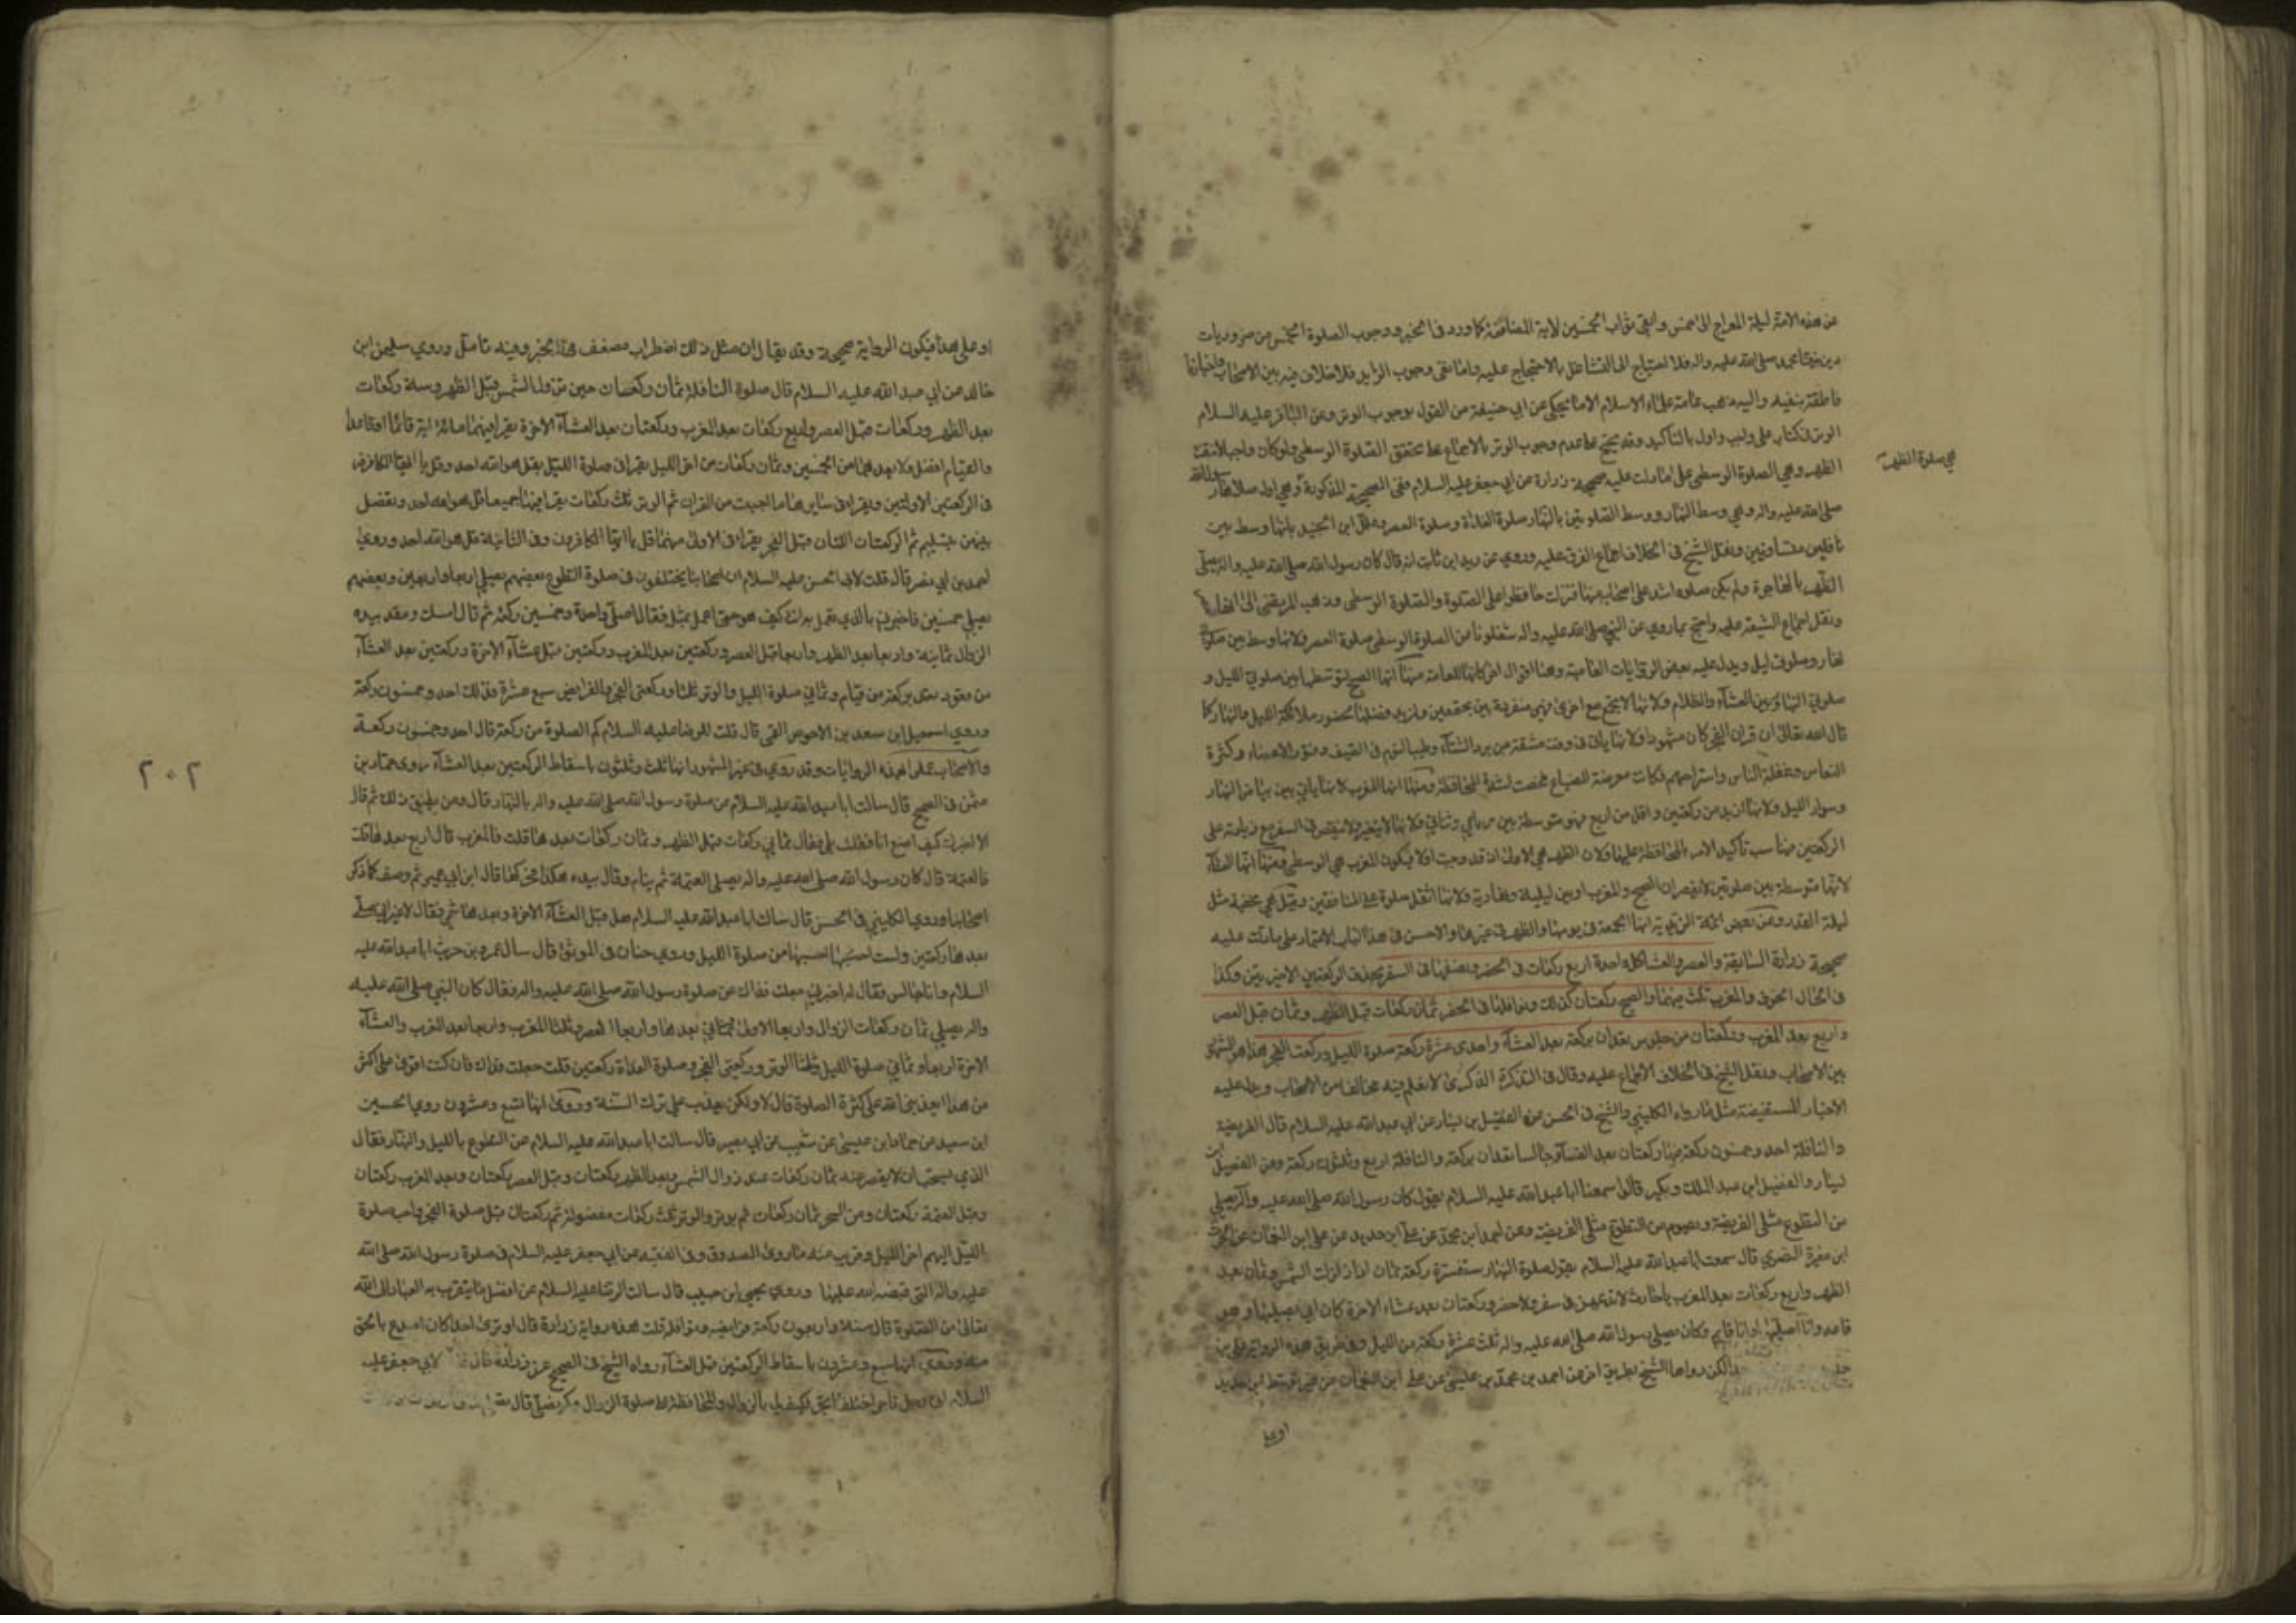 عن هذه الامة ليلة المعراج الى الخمس وابقى ثواب الخمسين لاية المضاعفة كما ورد في الخبر ووجوب الصلوة الخمس من ضروريات
دين نبينا محمد صلى الله عليه واله فلا احتياج الى التشاغل بالاحتجاج عليه واما نفى وجوب الزايد فلا خلاف فيه بين الاصحاب واخبارنا
ناطقة بنفيه واليه ذهب عامة علماء الاسلام الا ما يحكى عن ابي حنيفة من القول بوجوب الوتر وعن الباقر عليه السلام
الوتر في كتاب على واجب واول بالتاكيد وقد يحتج على عدم وجوب الوتر بالاجماع على تحقق الصلوة الوسطى ولو كان واجبا لانتفت
هي صلوة الظهر
الظهر وهي الصلوة الوسطى على ما دلت عليه صحيحة زرارة عن ابي جعفر عليه السلام ففى الصحيحة المذكورة وهي اول صلوة صلاها رسول الله
صلى الله عليه واله وهي وسط النهار ووسط الصلوتين بالنهار صلوة الغداة وصلوة العصر وعلل ابن الجنيد بانها وسط بين
نافلتين متساويتين ونقل الشيخ في الخلاف اجماع الفرق عليه وروي عن زيد ابن ثابت انه قال كان رسول الله صلى الله عليه واله يصلي
الظهر بالهاجرة ولم يكن صلوة اشد على اصحابه منها فنزلت حافظوا على الصلوة والصلوة الوسطى وذهب المرتضى الى انها
ونقل اجماع الشيعة عليه واحتج بما روي عن النبي صلى الله عليه واله شغلونا عن الصلوة الوسطى صلوة العصر ولانها وسط بين صلوتي
نهار وصلوتى ليل ويدل عليه بعض الروايات العامية وهنا اقوال اخر كلها للعامة منها انها الصبح لتوسطها بين صلوتي الليل و
صلوتي النهار وبين الضياء والظلام ولانها لا تجمع مع اخرى فهي منفردة بين مجتمعين ولمزيد فضلها لحضور ملائكة الليل والنهار كما
قال الله تعالى ان قران الفجر كان مشهودا ولانها ياتي في وقت مشقة من برد الشتاء وطيب النوم في الصيف وفتور الاعضاء وكثرة
النعاس وغفلة الناس واستراحتهم فكانت معرضة للضياع فخصت لشدة المحافظة ومنها انها المغرب لانها ياتي بين بياض النهار
وسواد الليل ولانها ازيد من ركعتين واقل من اربع فهي متوسطة بين رباعي وثنائي ولانها لا يتغير ولا ينقص في السفر مع زيادته على
الركعتين فناسب تاكيد الامر بالمحافظة عليها ولان الظهر هي الاولى اذ قد وجبت اولا فيكون المغرب هي الوسطى ومنها انها العشاء
لانها متوسطة بين صلوتين لا يقصران الصبح والمغرب او بين ليلية ونهارية ولانها اثقل صلوة على المنافقين وقيل هي مخفية مثل
ليلة القدر وعن بعض ائمة الزيدية انها الجمعة في يومها والظهر في غيرها والاحسن في هذا الباب الاعتماد على ما دلت عليه
صحيحة زرارة السابقة والعصر والعشاء كل واحدة اربع ركعات في الحضر ونصفها في السفر بحذف الركعتين الاخيرتين وكذا
في الحال الخوف والمغرب ثلث فيهما والصبح ركعتان كذلك ونوافلها في الحضر ثمان ركعات قبل الظهر وثمان قبل العصر
واربع بعد المغرب وركعتان من جلوس تعدان بركعة بعد العشاء واحدى عشرة ركعة صلوة الليل وركعتا الفجر هذا هو المشهور
بين الاصحاب ونقل الشيخ في الخلاف الاجماع عليه وقال في الذكرى لا نعلم فيه مخالفا من الاصحاب ويدل عليه
الاخبار المستفيضة مثل ما رواه الكليني والشيخ في الحسن عن الفضيل بن يسار عن ابي عبد الله عليه السلام قال الفريضة
والنافلة احد وخمسون ركعة منها ركعتان بعد العتمة جالسا تعدان بركعة والنافلة اربع وثلثون ركعة وعن الفضيل ابن
يسار والفضيل ابن عبد الملك وبكير قالوا سمعنا ابا عبد الله عليه السلام يقول كان رسول الله صلى الله عليه واله يصلي
من التطوع مثلى الفريضة ويصوم من التطوع مثلى الفريضة وعن احمد ابن محمد عن علي ابن حديد عن علي ابن النعمان عن الحرث
ابن مغيرة النصري قال سمعت ابا عبد الله عليه السلام يقول صلوة النهار ست عشرة ركعة ثمان اذا زالت الشمس وثمان بعد
الظهر واربع ركعات بعد المغرب يا حارث لا تدعهن في سفر ولا حضر وركعتان بعد عشاء الاخرة كان ابي يصليها وهو
قاعد وانا اصليها وانا قايم وكان يصلي رسول الله صلى الله عليه واله ثلث عشرة ركعة من الليل وفي طريق هذه الرواية علي بن
حديد لكن رواها الشيخ بطريق اخر عن احمد بن محمد بن عيسى عن علي ابن النعمان من غير توسط ابن حديد
او على
او على هذا فيكون الرواية صحيحة وقد يقال ان مثل ذلك اضطراب مضعف هذا الخبر وفيه تامل وروي سليمن ابن
خالد عن ابي عبد الله عليه السلام قال صلوة النافلة ثمان ركعات حين تزول الشمس قبل الظهر وستة ركعات
بعد الظهر وركعات قبل العصر واربع ركعات بعد المغرب وركعتان بعد العشاء الاخرة يقرا فيهما مائة اية قائما او قاعدا
والقيام افضل ولا يعدهما من الخمسين وثمان ركعات من اخر الليل يقرا في صلوة الليل بقل هو الله احد وقل يا ايها الكافرون
في الركعتين الاولتين ويقرا في سايرها ما احببت من القران ثم الوتر ثلث ركعات يقرا فيها جميعا قل هو الله احد ويفصل
بينهن بتسليم ثم الركعتان اللتان قبل الفجر يقرا في الاولى منهما قل يا ايها الكافرون وفي الثانية قل هو الله احد وروي
احمد بن ابي نصر قال قلت لابي الحسن عليه السلام ان اصحابنا يختلفون في صلوة التطوع بعضهم يصلي اربعا واربعين وبعضهم
يصلي خمسين فاخبرني بالذي تعمل به انت كيف هو حتى اعمل بمثله فقال اصلي واحدة وخمسين ركعة ثم قال امسك وعقد بيده
الزوال ثمانية واربعا بعد الظهر واربعا قبل العصر وركعتين بعد المغرب وركعتين قبل عشاء الاخرة وركعتين بعد العشاء
من قعود تعدى بركعة من قيام وثماني صلوة الليل والوتر ثلثا وركعتى الفجر والفرايض سبع عشرة فذلك احد وخمسون ركعة
وروي اسمعيل ابن سعد بن الاحوص القمي قال قلت للرضا عليه السلام كم الصلوة من ركعة قال احد وخمسون ركعة
والاصحاب عملوا بهذه الروايات وقد روي في غير المشهور انها ثلث وثلثون باسقاط الركعتين بعد العشاء روى حماد بن
عثمن في الصحيح قال سالت ابا عبد الله عليه السلام عن صلوة رسول الله صلى الله عليه واله بالنهار قال ومن يطيق ذلك ثم قال
الا اخبرك كيف اصنع انا فقلت بلى فقال ثماني ركعات قبل الظهر وثمان ركعات بعدها قلت فالمغرب قال اربع بعدها قلت
فالعتمة قال كان رسول الله صلى الله عليه واله يصلي العتمة ثم ينام وقال بيده هكذا فحركها قال ابن ابي عمير ثم وصف كما ذكر
اصحابنا وروى الكليني في الحسن قال سالت ابا عبد الله عليه السلام هل قبل العشاء الاخرة وبعدها شئ فقال لا غير اني اصلي
بعدها ركعتين ولست احسبهما من صلوة الليل وروي حنان في الموثق قال سال عمرو بن حريث ابا عبد الله عليه
السلام وانا جالس فقال له اخبرني جعلت فداك عن صلوة رسول الله صلى الله عليه واله فقال كان النبي صلى الله عليه
واله يصلي ثمان ركعات الزوال واربعا الاولى وثماني بعدها واربعا العصر وثلثا المغرب واربعا بعد المغرب والعشاء
الاخرة اربعا وثماني صلوة الليل وثلثا الوتر وركعتى الفجر وصلوة الغداة ركعتين قلت جعلت فداك فان كنت اقوى على اكثر
من هذا ايعذبني الله على كثرة الصلوة قال لا ولكن يعذب على ترك السنة وروى انها تسع وعشرون روي الحسين
ابن سعيد عن حماد ابن عيسى عن شعيب عن ابي بصير قال سالت ابا عبد الله عليه السلام عن التطوع بالليل والنهار فقال
الذي يستحب ان لا يقصر عنه ثمان ركعات عند زوال الشمس وبعد الظهر ركعتان وقبل العصر ركعتان وبعد المغرب ركعتان
وقبل العتمة ركعتان ومن السحر ثمان ركعات ثم يوتر والوتر ثلث ركعات مفصولة ثم ركعتان قبل صلوة الفجر واحب صلوة
الليل اليهم اخر الليل وقريب منه ما روى الصدوق في الفقيه عن ابي جعفر عليه السلام في صلوة رسول الله صلى الله
عليه واله التى قبضه الله عليها وروي يحيى ابن حبيب قال سالت الرضا عليه السلام عن افضل ما يتقرب به العباد الى الله
تعالى من الصلوة قال ستة واربعون ركعة فرايضه ونوافله قلت هذه رواية زرارة قال او ترى احدا كان اصدع بالحق
منه وروي انها سبع وعشرون باسقاط الركعتين قبل العشاء رواه الشيخ في الصحيح عن زرارة قال لابي جعفر عليه
السلام اني رجل تاجر اختلف واتجر فكيف لي بالزوال والمحافظة على صلوة الزوال وكم تصلى قال
٢٠٢